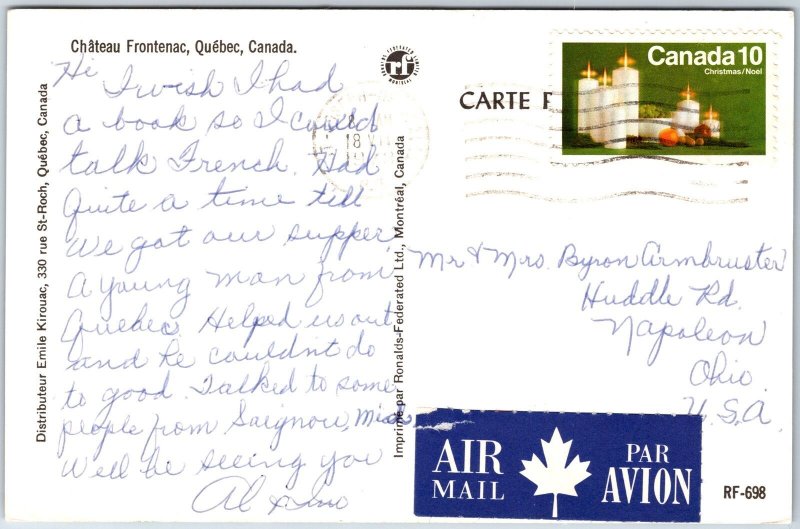 Château Frontenac, Québec, Canada.
Hi I wish I had
a book so I could
talk French. Had
quite a time till
we got our supper.
A young man from
Quebec Helped us out
and he couldn't do
to good. Talked to some
people from Saignou, Mich
We'll be seeing you
Al
Distributeur Emile Kirouac, 330 rue St-Roch, Québec, Canada
Imprimé par Ronalds-Federated Ltd., Montréal, Canada
rf
CARTE P
18
Canada 10
Christmas/Noel
Mr & Mrs. Byron Armbruster
Huddle Rd.
Napoleon
Ohio.
U.S.A.
AIR
MAIL
PAR
AVION
RF-698